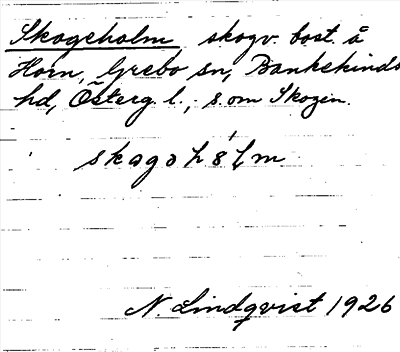 Skogeholm skogv. bost. å
Horn, Grebo sn, Bankekinds
hd, Österg. l., s. om Skogen.
skogəhólm
N. Lindqvist 1926